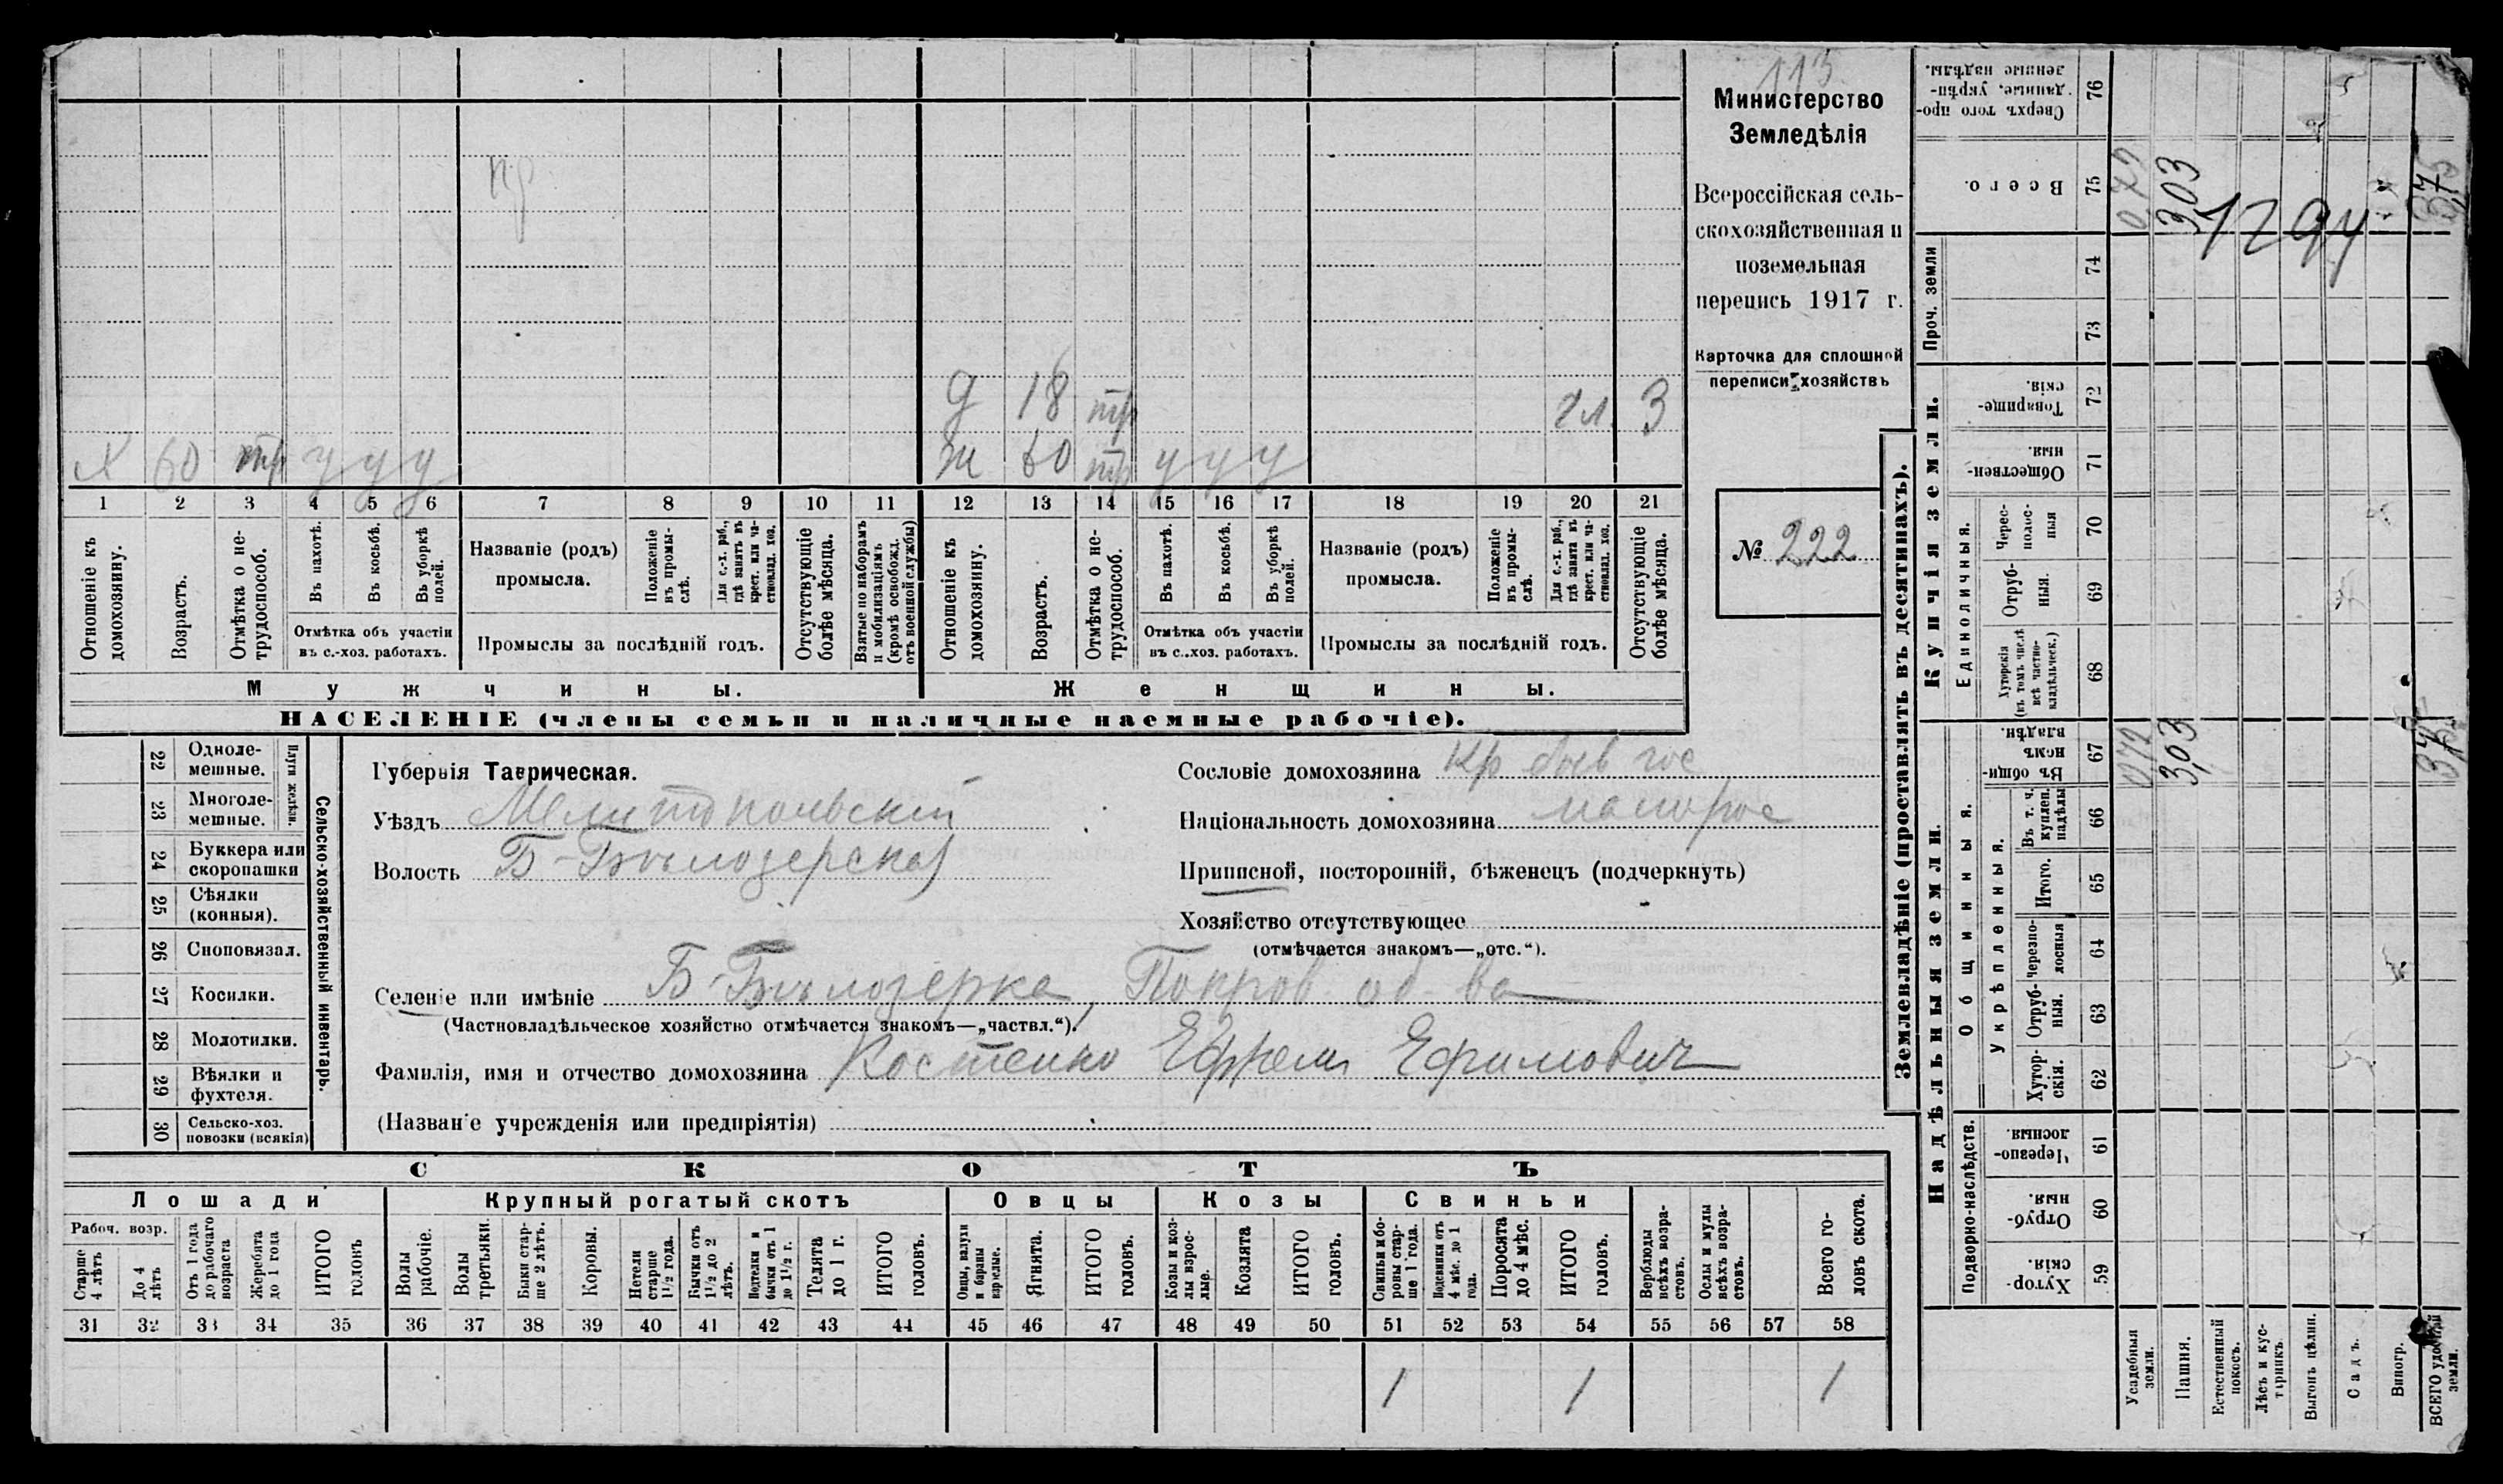 113
Министерство
Земледѣлія
Всероссійская сель-
скохозяйственная и
поземельная
перепись 1917 г.
Карточка для сплошной
переписи хозяйствъ
№ 222
пр
д 18 тр гл. 3
х 60 тр у у у ж 60 тр у у у
1 2 3 4 5 6 7 8 9 10 11 12 13 14 15 16 17 18 19 20 21
Отношеніе къ домохозяину.
Возрастъ.
Отмѣтка о не-трудоспособ.
Въ пахотѣ.
Въ косьбѣ.
Въ уборкѣ полей.
Отмѣтка объ участіи
въ с.-хоз. работахъ.
Названіе (родъ)
промысла.
Положеніе въ промы-слѣ.
Для с.-х. раб., гдѣ занятъ въ крест. или ча-стновлад. хоз.
Промыслы за послѣдній годъ.
Отсутствующіе болѣе мѣсяца.
Взятые по наборамъ и мобилизаціямъ (кромѣ освобожд. отъ военной службы)
Отношеніе къ домохозяину.
Возрастъ.
Отмѣтка о не-трудоспособ.
Въ пахотѣ.
Въ косьбѣ.
Въ уборкѣ полей.
Отмѣтка объ участіи
въ с.-хоз. работахъ.
Названіе (родъ)
промысла.
Положеніе въ промы-слѣ.
Для с.-х. раб., гдѣ занята въ крест. или ча-стновлад. хоз.
Промыслы за послѣдній годъ.
Отсутствующіе болѣе мѣсяца.
Мужчины. Женщины.
НАСЕЛЕНІЕ (члены семьи и наличные наемные рабочіе).
22 Одноле-мешные.
23 Многоле-мешные.
Плуги желѣзн.
24 Буккера или скоропашки
25 Сѣялки (конныя).
26 Сноповязал.
27 Косилки.
28 Молотилки.
29 Вѣялки и фухтеля.
30 Сельско-хоз. повозки (всякія)
Сельско-хозяйственный инвентарь.
Губернія Таврическая.
Уѣздъ Мелитопольскій
Волость Б-Бѣлозерская
Сословіе домохозяина кр
Національность домохозяина малорос
Приписной, посторонній, бѣженецъ (подчеркнуть)
Хозяйство отсутствующее
(отмѣчается знакомъ—„отс.“).
Селеніе или имѣніе Б-Бѣлозерка, Покров об-ва
(Частновладѣльческое хозяйство отмѣчается знакомъ—„частвл.“).
Фамилія, имя и отчество домохозяина Костенко Ефрем Ефимович
(Названіе учрежденія или предпріятія)
СКОТЪ
Лошади Крупный рогатый скотъ Овцы Козы Свиньи
Рабоч. возр.
Старше 4 лѣтъ
До 4 лѣтъ
Отъ 1 года до рабочаго возраста
Жеребята до 1 года
ИТОГО головъ
Волы рабочіе.
Волы третьяки.
Быки стар-ше 2 лѣтъ.
Коровы.
Нетели старше 1½ года.
Бычки отъ 1½ до 2 лѣтъ.
Подтелки и бычки отъ 1 до 1½ г.
Телята до 1 г.
ИТОГО головъ.
Овцы, валухи и бараны взрослые.
Ягнята.
ИТОГО головъ.
Козы и коз-лы взрос-лые.
Козлята
ИТОГО головъ.
Свиньи и бо-ровы стар-ше 1 года.
Подсвинки отъ 4 мѣс. до 1 года.
Поросята до 4 мѣс.
ИТОГО головъ.
Верблюды всѣхъ возра-стовъ.
Ослы и мулы всѣхъ возра-стовъ.
Всего го-ловъ скота.
31 32 33 34 35 36 37 38 39 40 41 42 43 44 45 46 47 48 49 50 51 52 53 54 55 56 57 58
1 1 1
Землевладѣніе (проставлять въ десятинахъ).
Надѣльныя земли. Купчія земли. Проч. земли
Подворно-наслѣдств.
Общинныя.
Укрѣпленныя.
Единоличныя.
Сверхъ того про-данные, укрѣп-ленные надѣлы. 76
Всего. 75 072 303 375
1294
74
73
Товарище-скія. 72
Обществен-ныя. 71
Черес-полос-ныя 70
Отруб-ныя. 69
Хуторскія (въ томъ числѣ всѣ частно-владѣльческ.) 68
Въ общин-номъ владѣн. 67 072 3,03 375
Въ т. ч. куплен. надѣлы 66
Итого. 65
Черезпо-лосныя 64
Отруб-ныя. 63
Хутор-скія. 62
Черезпо-лосныя. 61
Отруб-ныя. 60
Хутор-скія. 59
Усадебныя земли.
Пашня.
Естественный покосъ.
Лѣсъ и кус-тарникъ.
Выгонъ цѣлин.
Садъ.
Виногр.
ВСЕГО удобной земли.